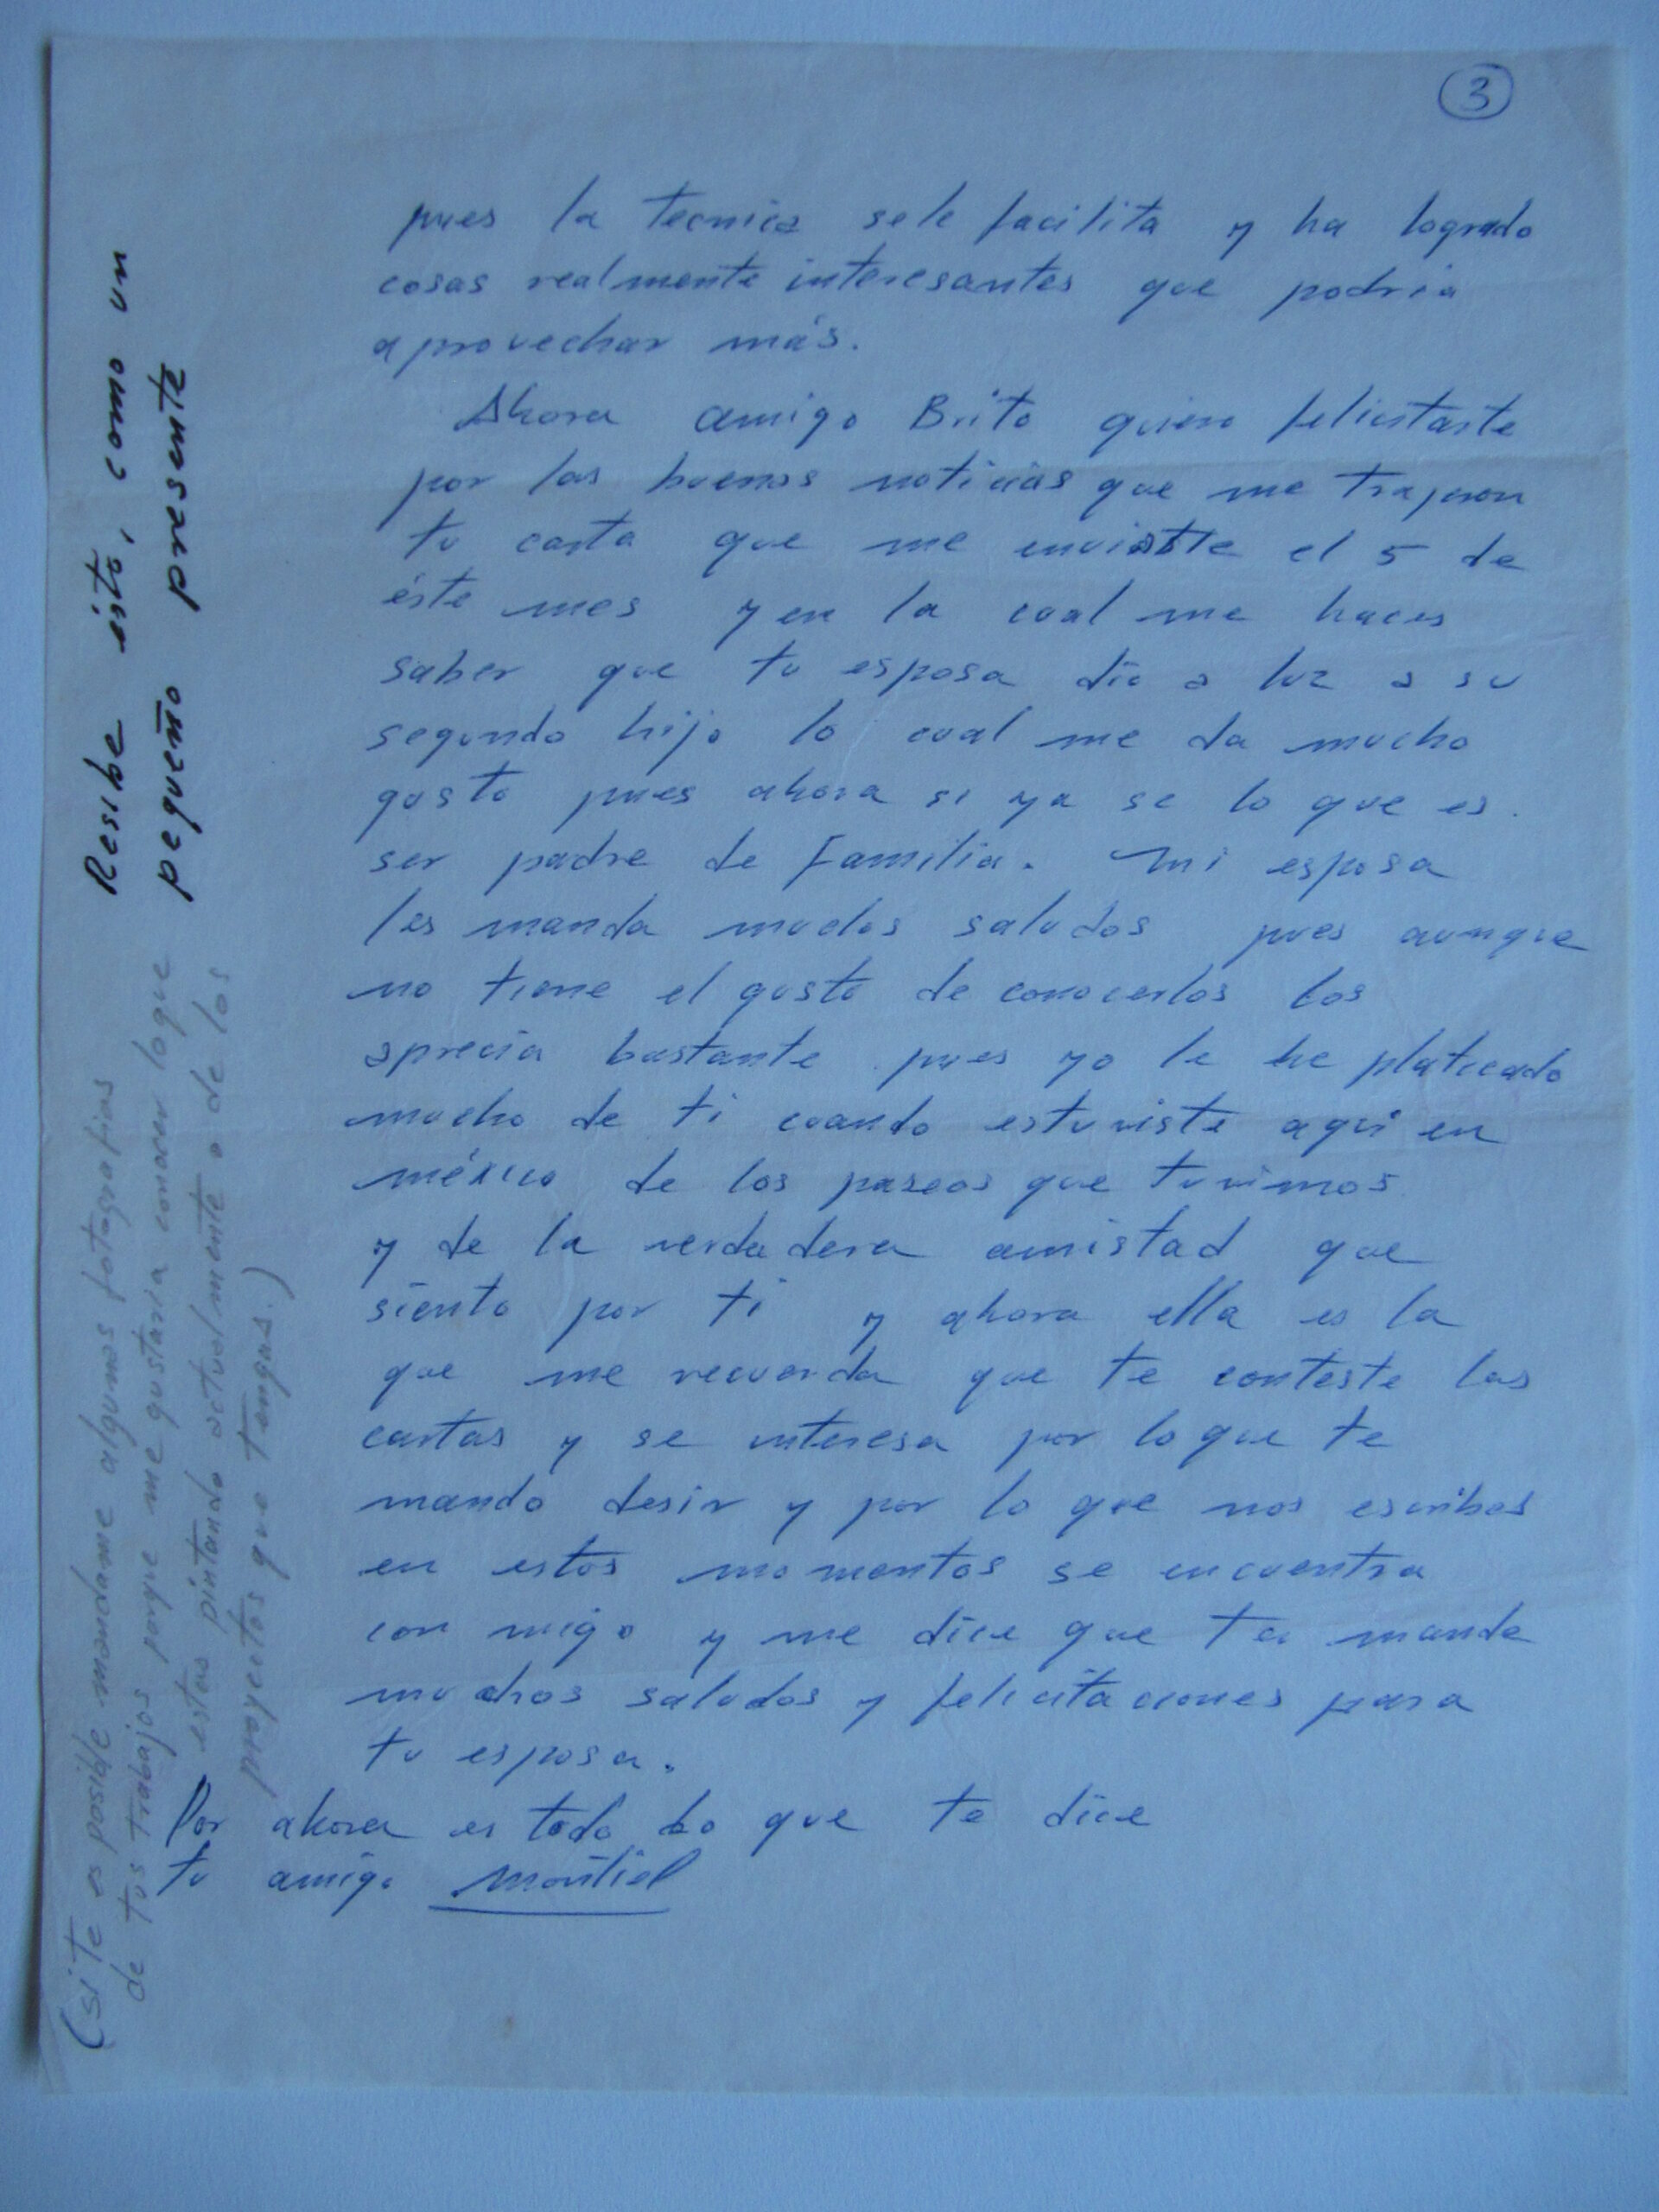 3
pues la tecnica sele facilita y ha logrado
cosas realmente interesantes que podria
aprovechar más.
Ahora amigo Brito quiero felicitarte
por las buenas noticias que me trajeron
tu carta que me enviaste el 5 de
éste mes y en la cual me haces
saber que tu esposa dio a luz a su
segundo hijo lo cual me da mucho
gusto pues ahora si ya se lo que es.
ser padre de familia. mi esposa
les manda muchos saludos pues aunque
no tiene el gusto de conocerlos los
aprecia bastante pues yo le he platicado
mucho de ti cuando estuviste aqui en
méxico de los paseos que tuvimos
y de la verdadera amistad que
siento por ti y ahora ella es la
que me recuerda que te conteste las
cartas y se interesa por lo que te
mando desir y por lo que nos escribes
en estos momentos se encuentra
con migo y me dice que te mande
muchos saludos y felicitaciones para
tu esposa.
Por ahora es todo lo que te dice
tu amigo montiel
Resibe ésto, como un
pequeño presente
(si te es posible mandame algunas fotografias
de tus trabajos porque me gustaria conocer lo que
estas pintando actualmente o de los
proyectos que tengas.)